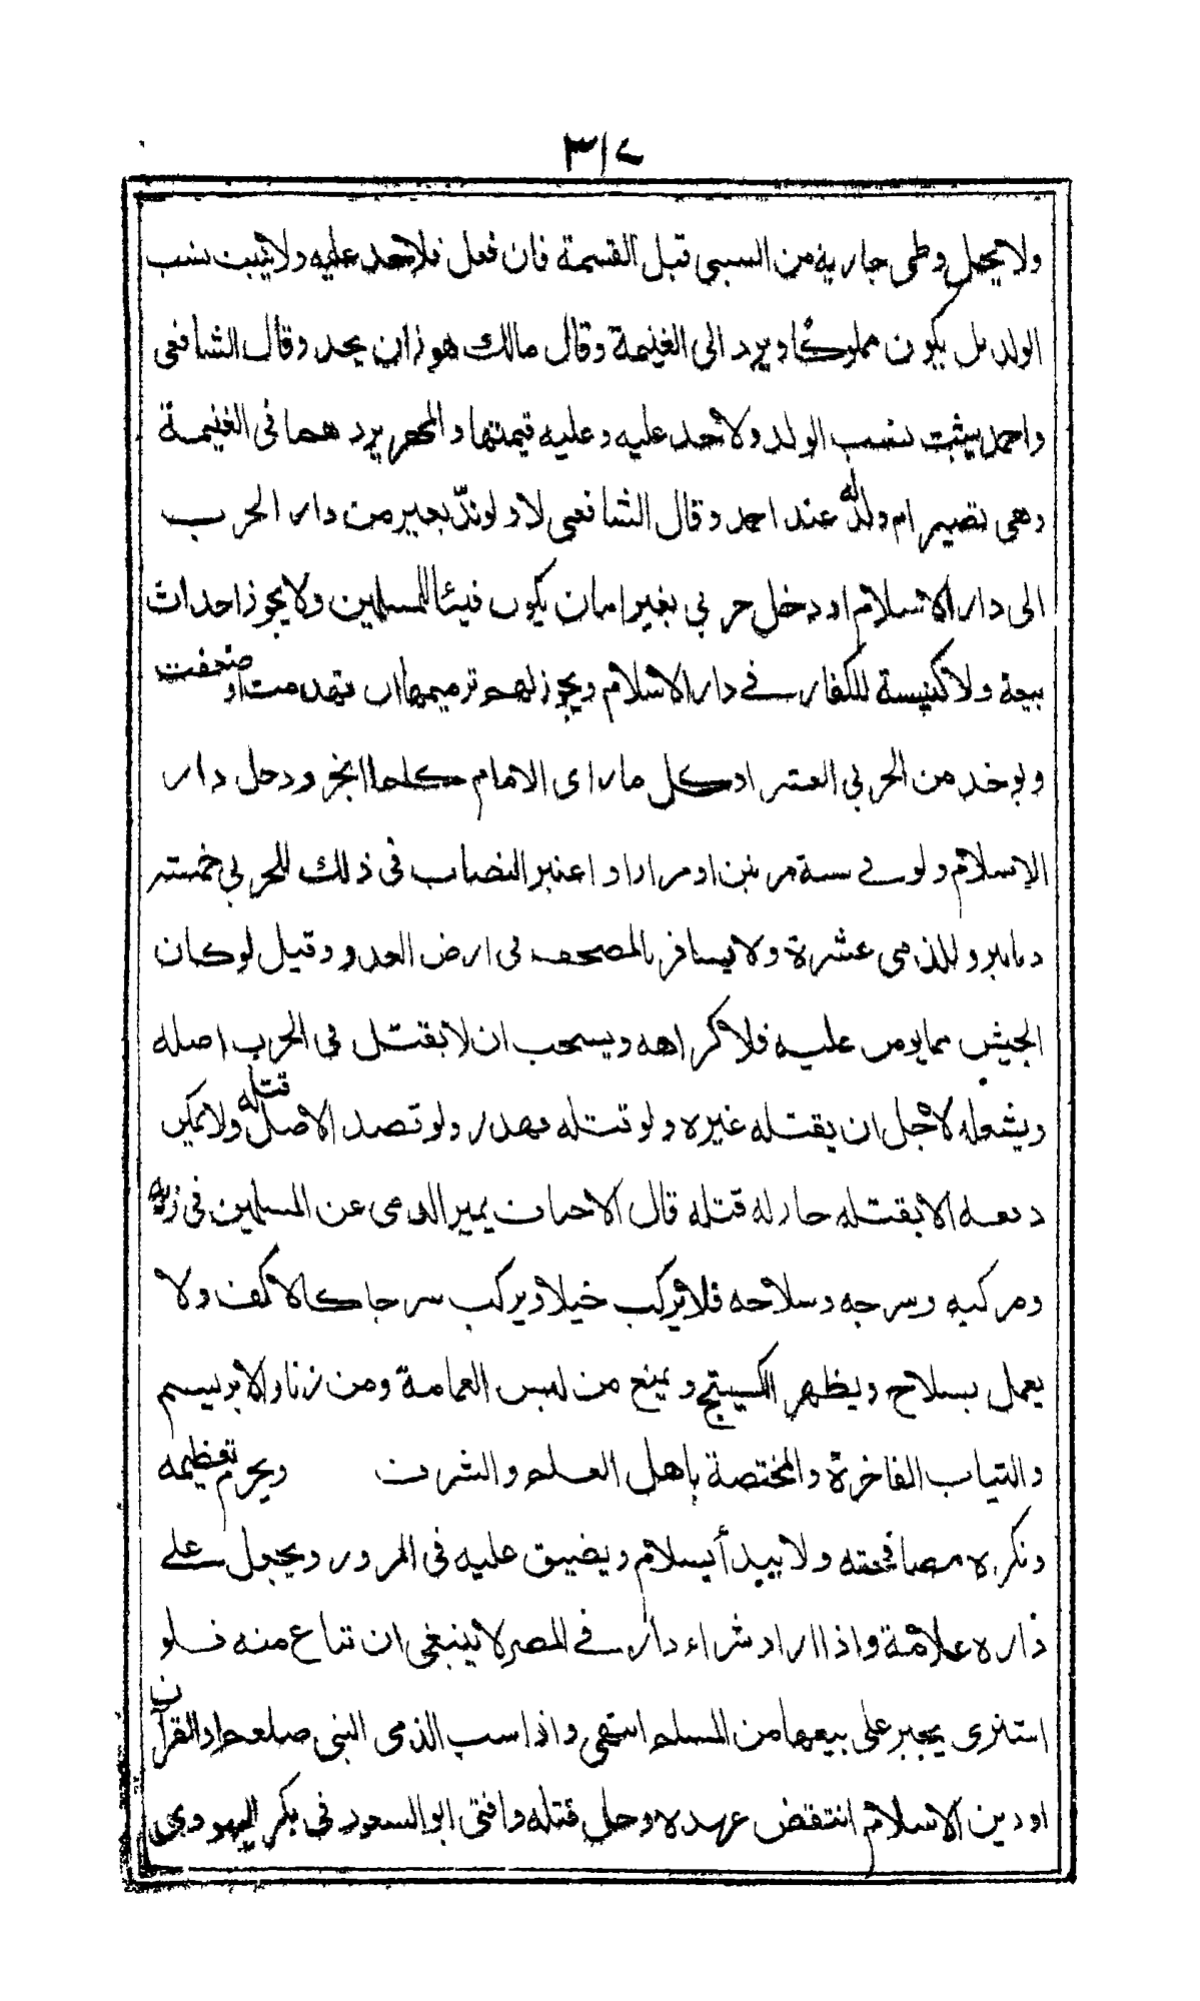 ٣١٧
ولا يحل وطى جارية من السبى قبل القسمة فان فعل فلا حد عليه ولا يثبت نسب
الولد بل يكون مملوكا ويرد الى الغنيمة وقال مالك هو زان يحد وقال الشافعى
واحمد يثبت نسب الولد ولا حد عليه وعليه قيمتها والمهر يرد هما فى الغنيمة
وهى تصير ام ولد له عند احمد وقال الشافعى لا ولو ندّ بعير من دار الحرب
الى دار الاسلام او دخل حربي بغير امان يكون فيئا للمسلمين ولا يجوز احداث
بيعة ولا كنيسة للكفار في دار الاسلام ويجوز لهم ترميمها ان تهدمت او ضعفت
ويوخد من الحربي العشر او كل ما راى الامام كلما اتجر ودخل دار
الاسلام ولو في سنة مرتين او مرارا و اعتبر النصاب فى ذلك للحربي خمسة
دنانير وللذمى عشرة ولا يسافر بالمصحف فى ارض العدو وقيل لو كان
الجيش مما يومن عليه فلا كراهه ويستحب ان لا يقتل فى الحرب اصله
ويشغله لاجل ان يقتله غيره ولو قتله فهدر ولو قصد الاصل قتله ولا يمكن
دفعه الا بقتله جاز له قتله قال الاحناف يميز الذمى عن المسلمين فى زيه
ومركبه وسرجه وسلاحه فلا يركب خيلا ويركب سرجا كالاكف ولا
يعمل بسلاح ويظهر الكستيج ويمنع من لبس العمامة ومن زنار الابريسم
والثياب الفاخرة والمختصة باهل العلم والشرف ويحرم تعظيمه
وتكره مصافحته ولا يبدأ بسلام ويضيق عليه فى المرور ويجعل على
داره علامة واذا اراد شراء دار في المصر لا ينبغى ان تباع منه فلو
اشترى يجبر على بيعها من المسلم انتهى واذا سب الذمى النبى صلعم او القرآن
او دين الاسلام انتقض عهده وحل قتله وافتى ابو السعود فى بكر اليهودي